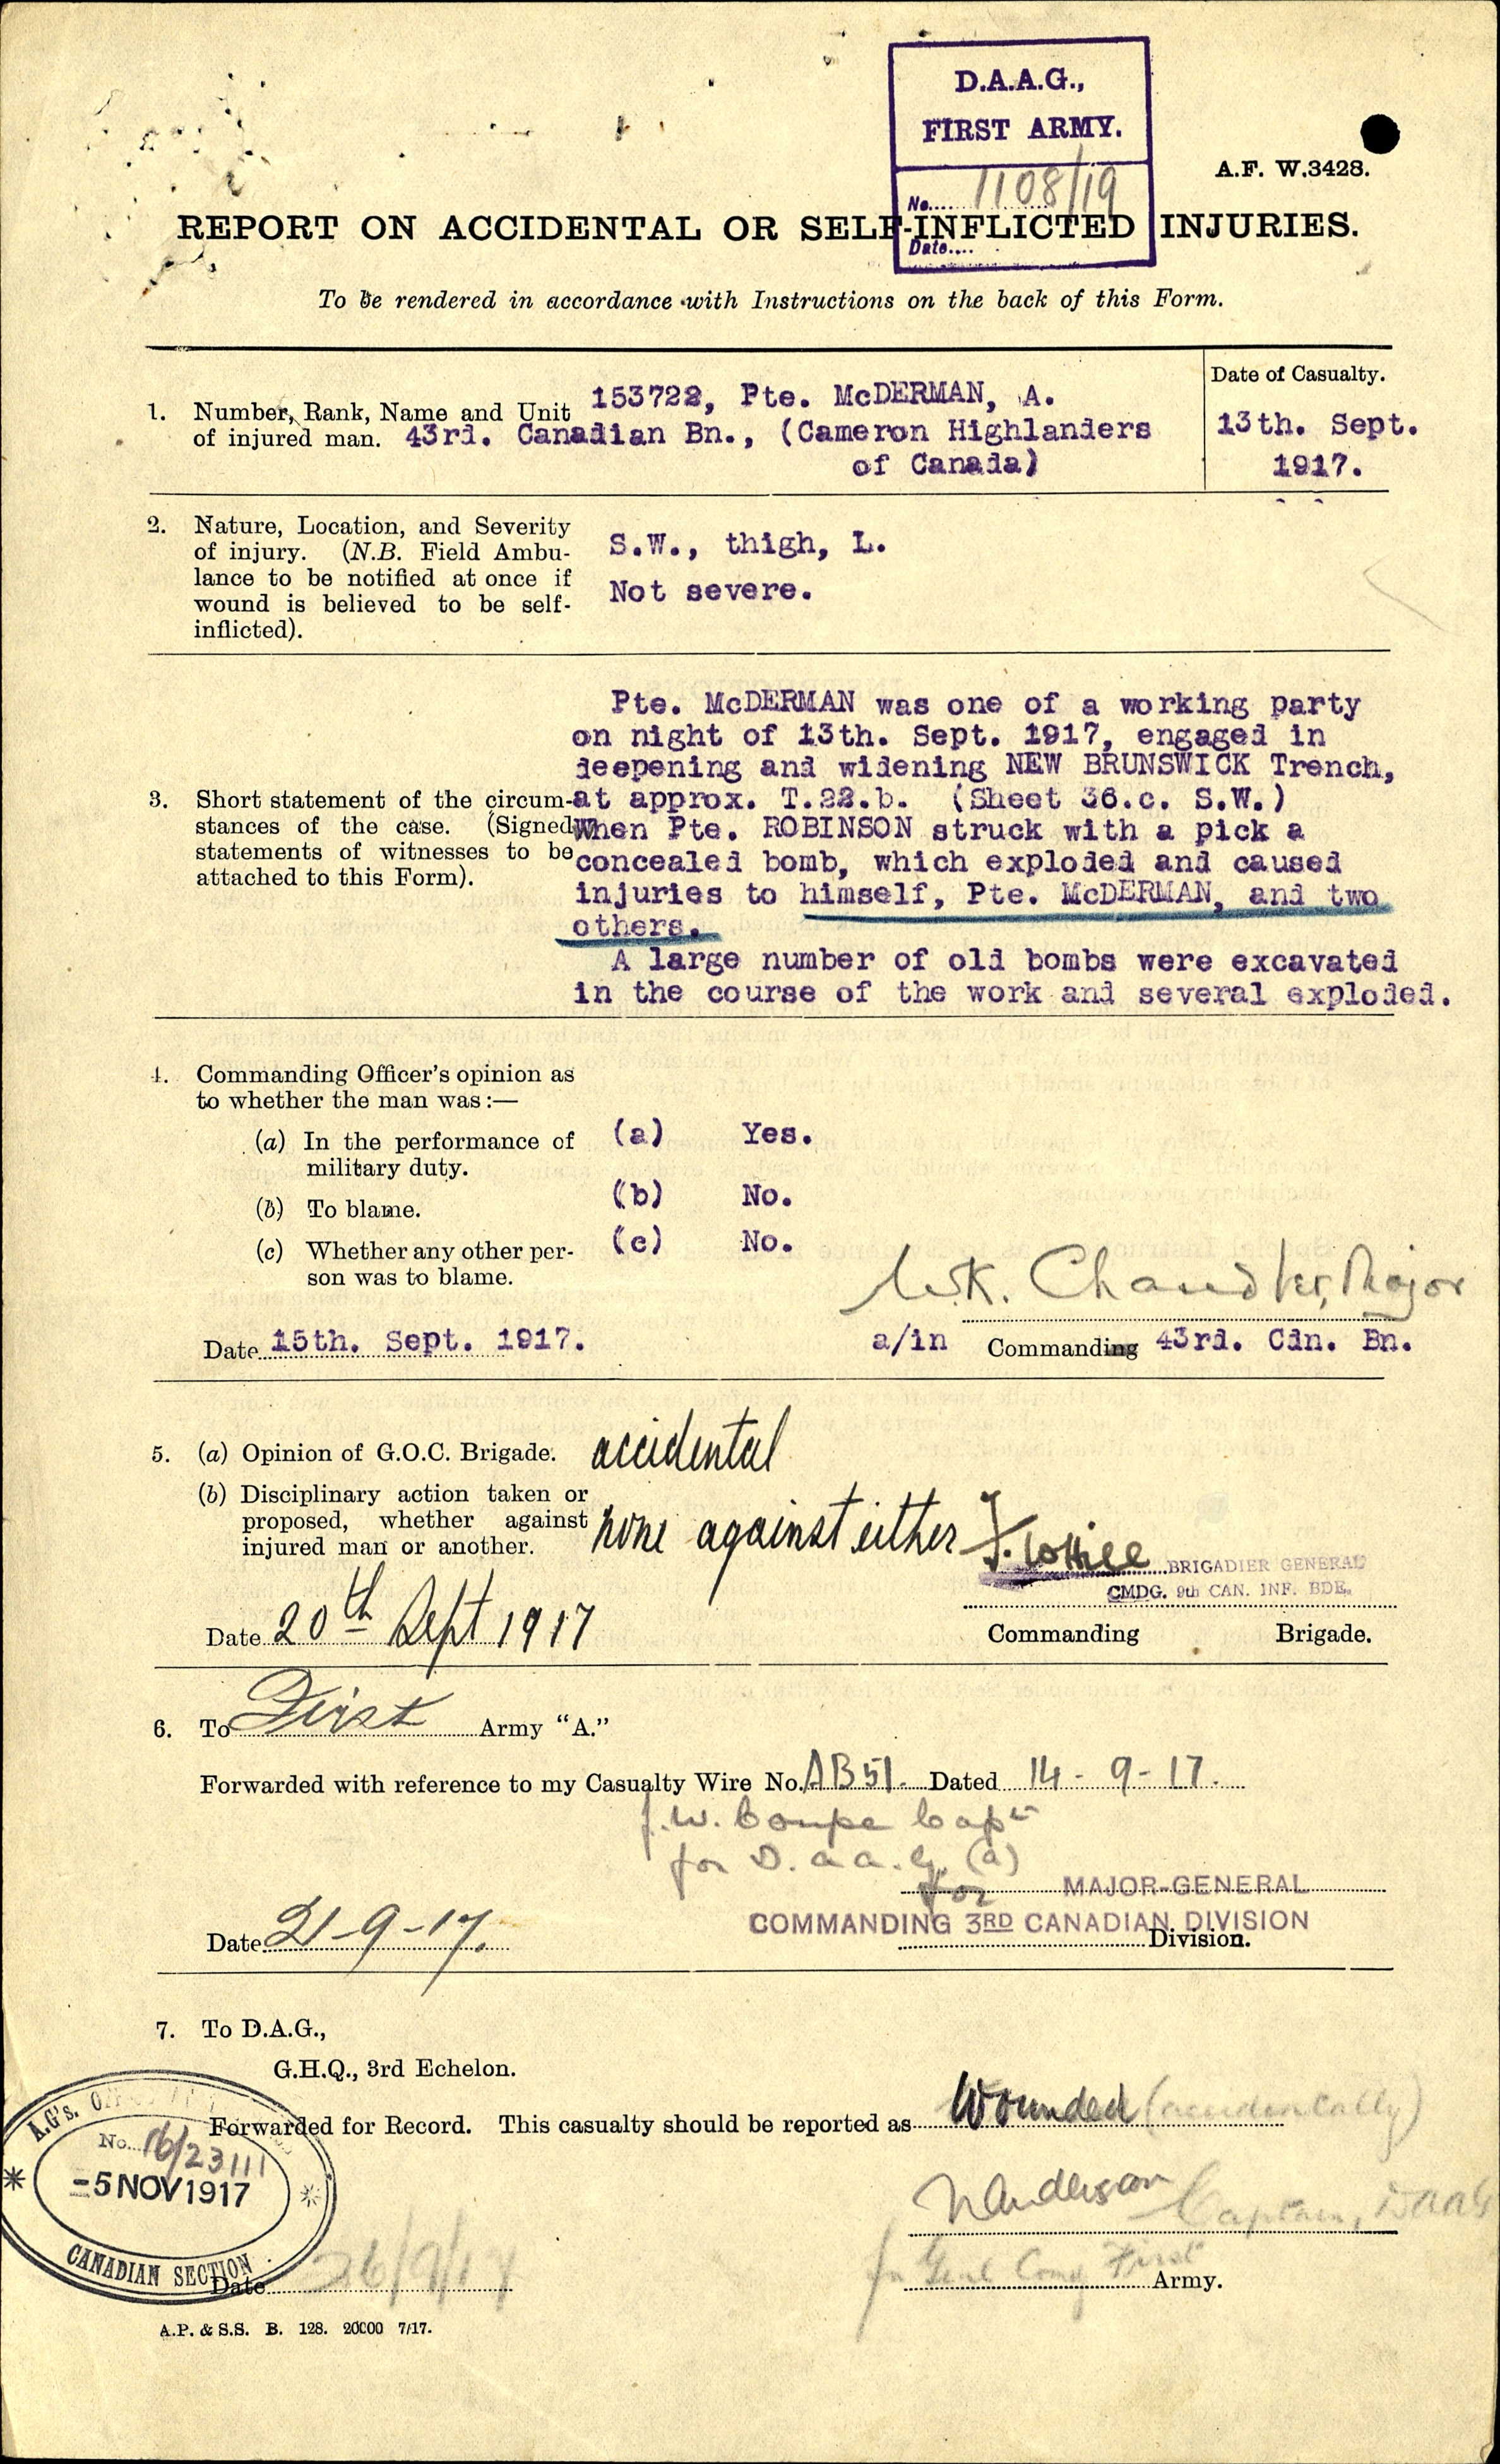 D.A.A.G.,
FIRST ARMY.
No..... 1108/19
Date....
A.F. W.3428.
REPORT ON ACCIDENTAL OR SELF-INFLICTED INJURIES.
To be rendered in accordance with Instructions on the back of this Form.
1. Number, Rank, Name and Unit of injured man.
153722, Pte. McDERMAN, A.
43rd. Canadian Bn., (Cameron Highlanders
of Canada)
Date of Casualty.
13th. Sept.
1917.
2. Nature, Location, and Severity
of injury. (N.B. Field Ambu-
lance to be notified at once if
wound is believed to be self-
inflicted).
S.W., thigh, L.
Not severe.
3. Short statement of the circum-
stances of the case. (Signed
statements of witnesses to be
attached to this Form).
Pte. McDERMAN was one of a working party
on night of 13th. Sept. 1917, engaged in
deepening and widening NEW BRUNSWICK Trench,
at approx. T.22.b. (Sheet 36.c. S.W.)
When Pte. ROBINSON struck with a pick a
concealed bomb, which exploded and caused
injuries to himself, Pte. McDERMAN, and two
others.
A large number of old bombs were excavated
in the course of the work and several exploded.
4. Commanding Officer's opinion as
to whether the man was:—
(a) In the performance of
military duty.
(a) Yes.
(b) To blame.
(b) No.
(c) Whether any other per-
son was to blame.
(c) No.
W.K. Chandler, Major
Date 15th. Sept. 1917.
a/in Commanding 43rd. Cdn. Bn.
5. (a) Opinion of G.O.C. Brigade. accidental
(b) Disciplinary action taken or
proposed, whether against
injured man or another.
none against either
BRIGADIER GENERAL
CMDG. 9th CAN. INF. BDE.
Date 20th Sept 1917
Commanding Brigade.
6. To First Army "A."
Forwarded with reference to my Casualty Wire No. AB51. Dated 14-9-17.
J.W. Coupe Capt
for D.a.a.G. (a)
for MAJOR-GENERAL
COMMANDING 3RD CANADIAN DIVISION
Date 21-9-17. Division.
7. To D.A.G.,
G.H.Q., 3rd Echelon.
Forwarded for Record. This casualty should be reported as Wounded (accidentally)
A.G's.
No. 16/23111
-5 NOV 1917
CANADIAN SECTION
Anderson Captain, DAAG
for Genl Comg First Army.
Date 26/9/17
A.P. & S.S. B. 128. 20000 7/17.